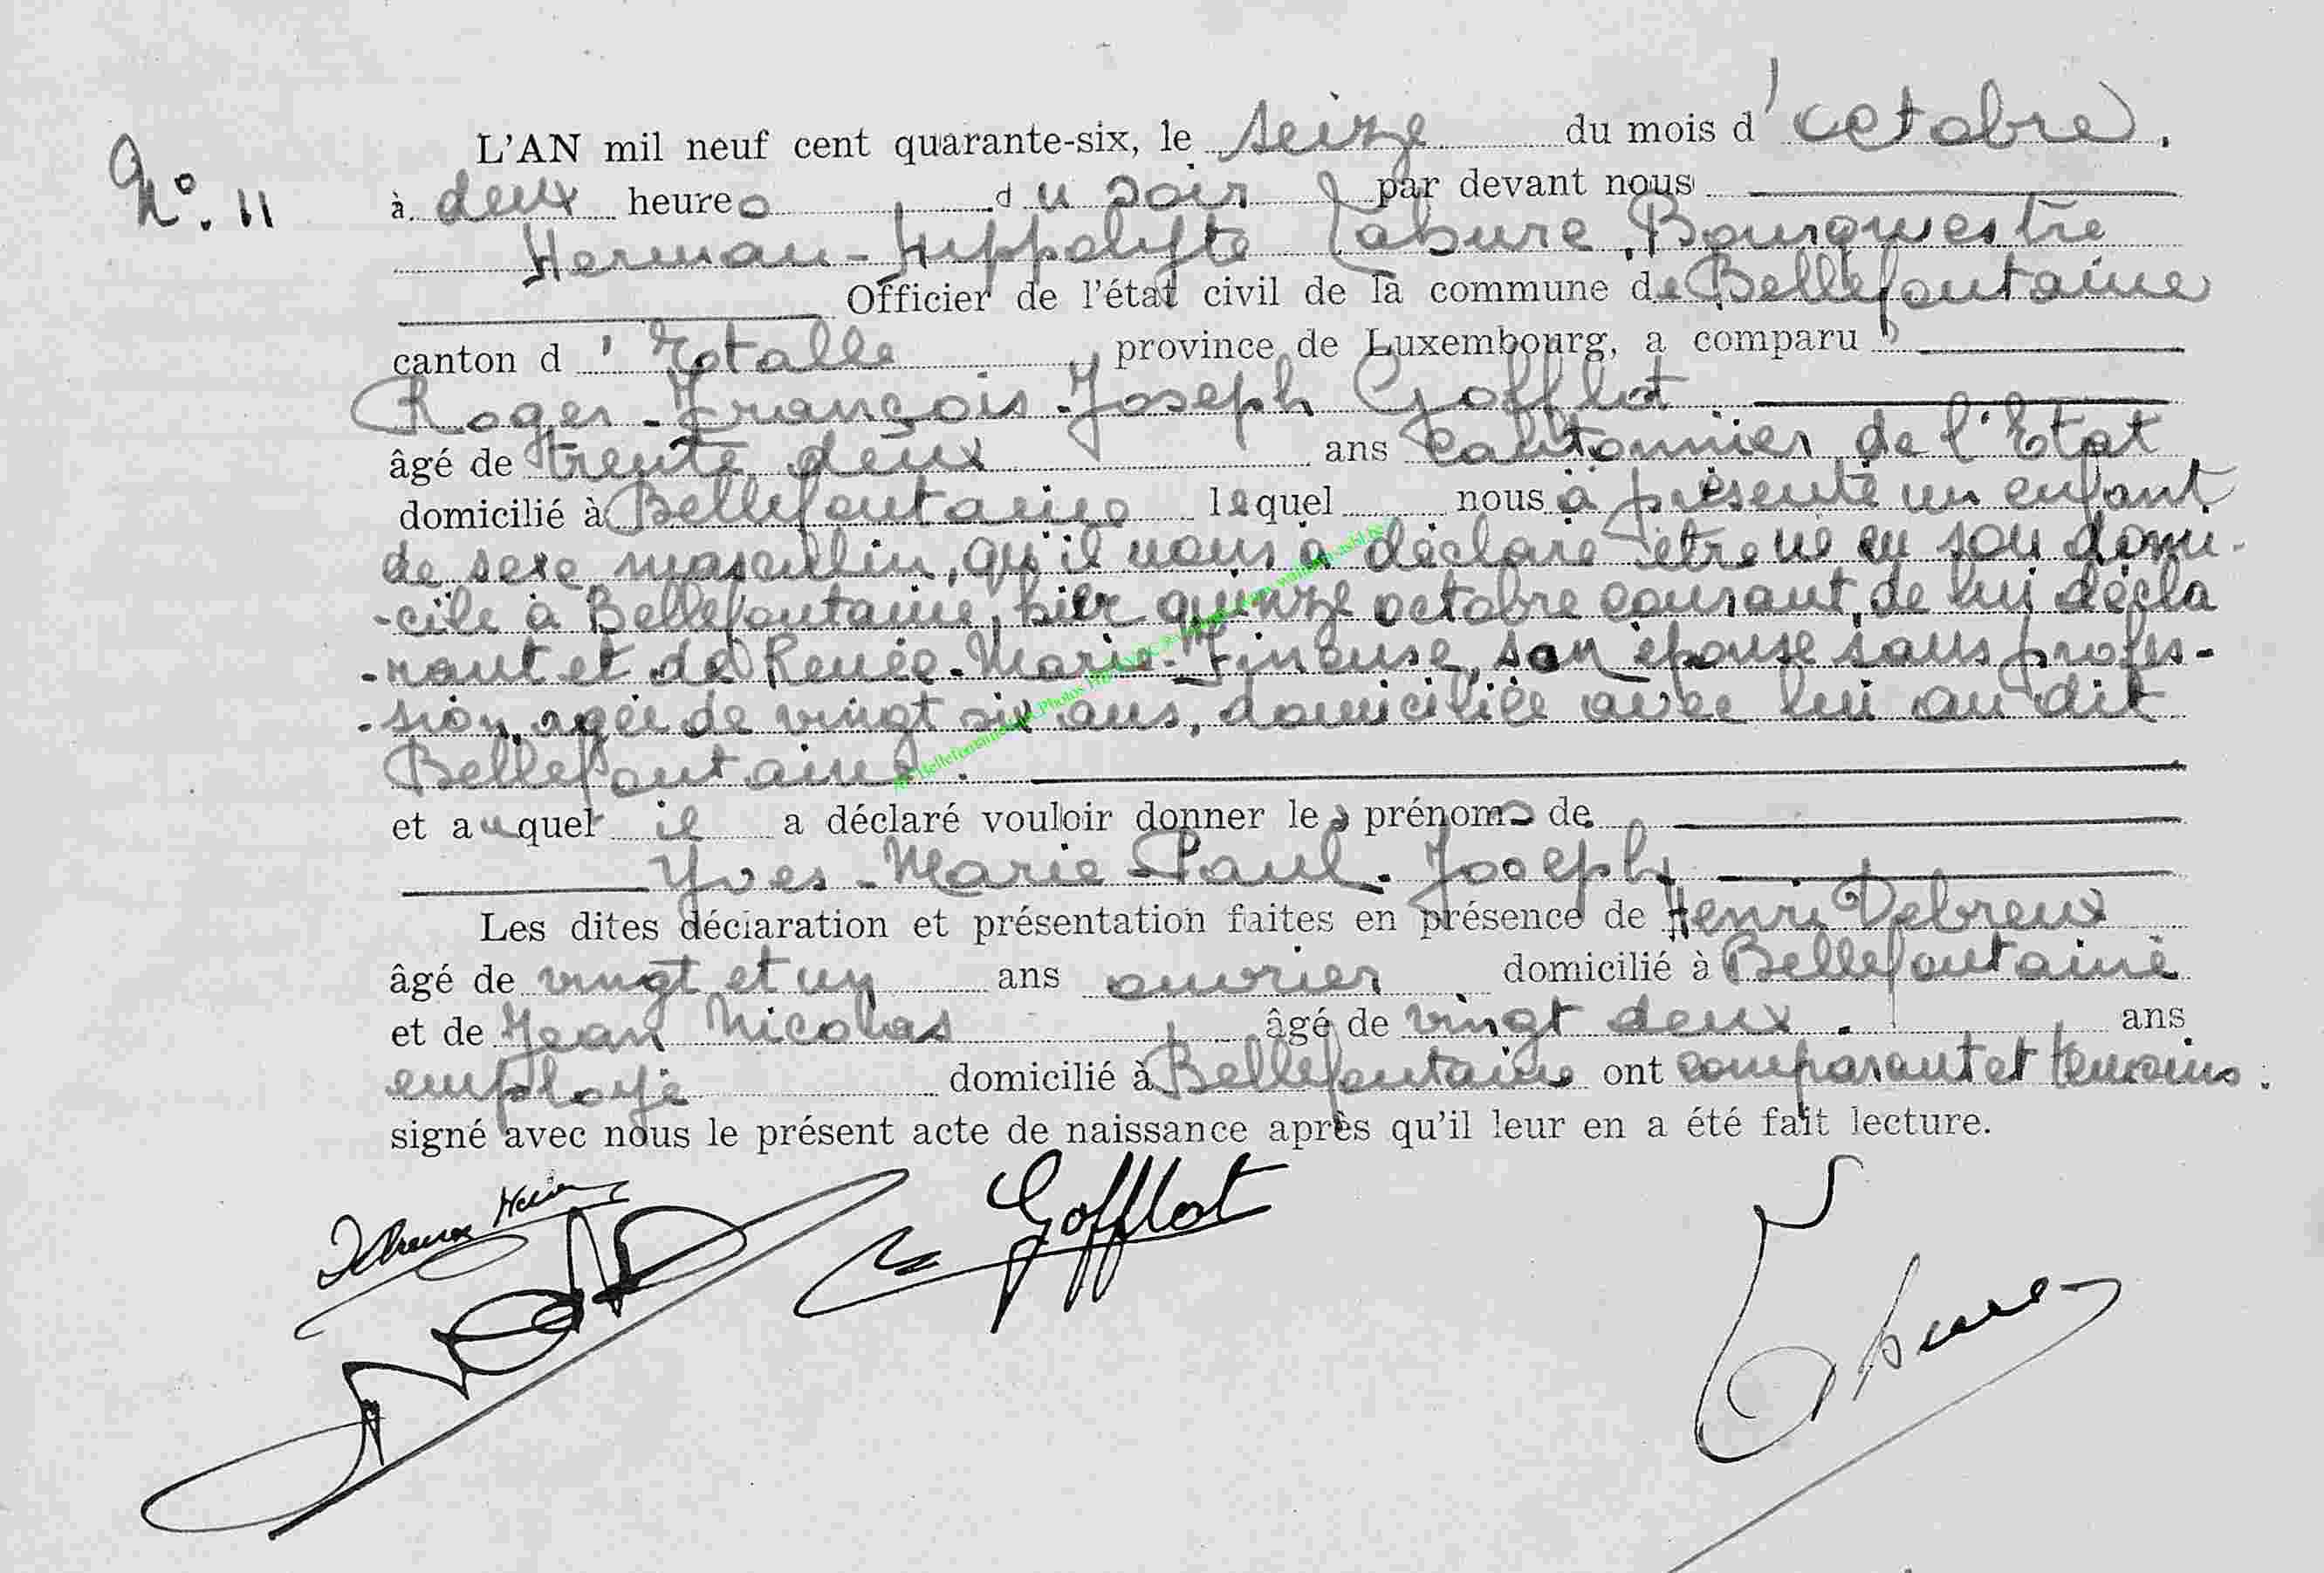 N°. 11
L'AN mil neuf cent quarante-six, le seize du mois d'octobre.
à deux heures du soir par devant nous
Herman-Hippolyte Labure, Bourgmestre
Officier de l'état civil de la commune de Bellefontaine
canton d'Etalle, province de Luxembourg, a comparu
Roger-François-Joseph Gofflot
âgé de trente deux ans cantonnier de l'Etat
domicilié à Bellefontaine lequel nous a présenté un enfant
de sexe masculin, qu'il nous a déclaré être né en son domi-
-cile à Bellefontaine, hier quinze octobre courant, de lui décla
-rant et de Renée-Marie-Fineuse, son épouse sans profes-
-sion, agée de vingt six ans, domiciliée avec lui au dit
Bellefontaine.
et auquel il a déclaré vouloir donner les prénoms de
Yves-Marie-Paul-Joseph
Les dites déclaration et présentation faites en présence de Henri Debreux
âgé de vingt et un ans ouvrier domicilié à Bellefontaine
et de Jean Nicolas âgé de vingt deux. ans
employé domicilié à Bellefontaine ont comparant et témoins.
signé avec nous le présent acte de naissance après qu'il leur en a été fait lecture.
Gofflot